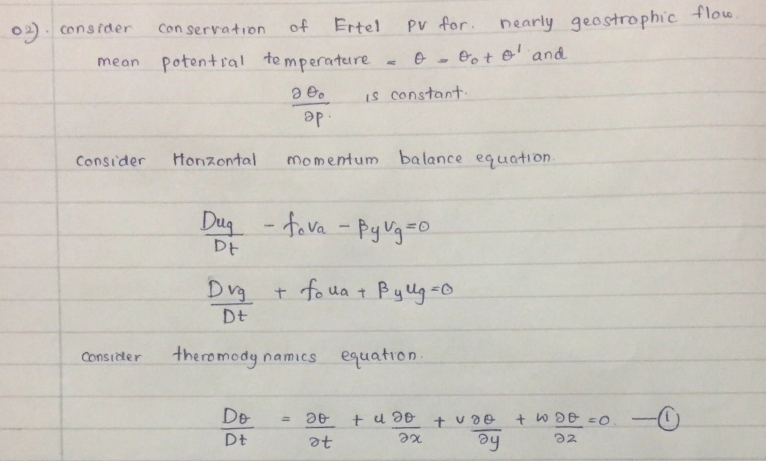 02). consider conservation of Ertel PV for. nearly geostrophic flow.
mean potential temperature = θ = θ₀ + θ' and
∂θ₀/∂p. is constant.
consider Horizontal momentum balance equation.
Dug/Dt - f₀va - βyvg = 0
Dvg/Dt + f₀ua + βyug = 0
consider theromodynamics equation.
Dθ/Dt = ∂θ/∂t + u ∂θ/∂x + v ∂θ/∂y + w ∂θ/∂z = 0. —①